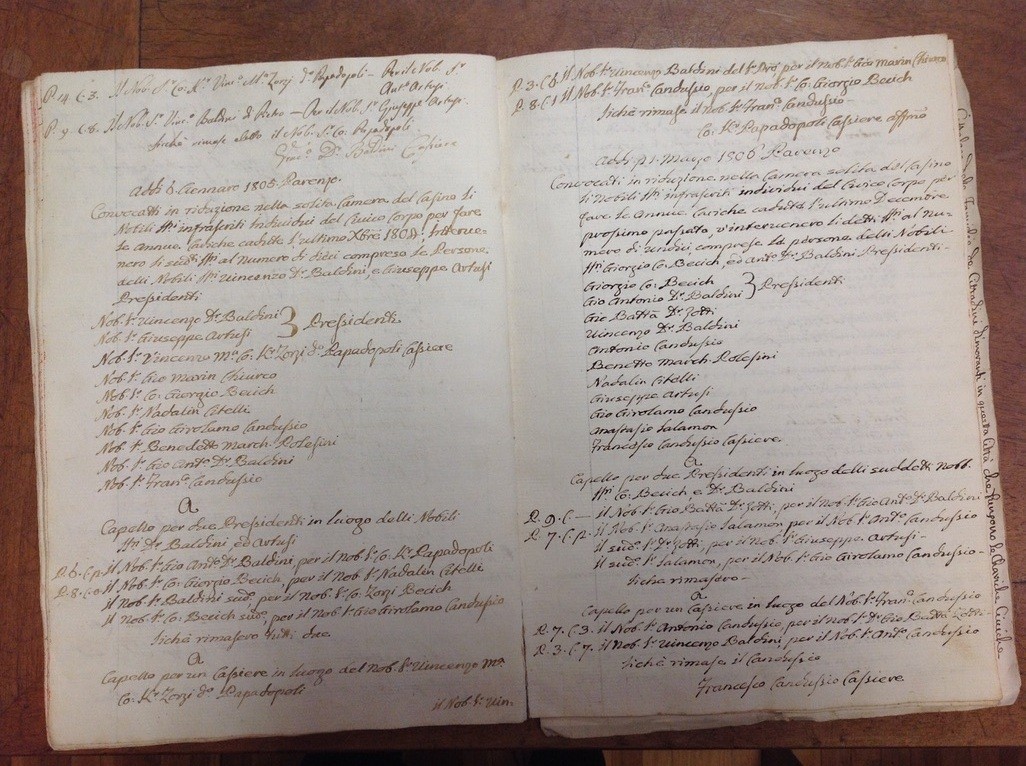 P. 14. C. 3. Il Nob. Sr. Co: Kr. Vinc.o M.a Zorzi d.o Papadopoli – Per il Nob. Sr.
Ant.o Artusi
P. 9. C. 8. Il Nob. Sr. Vinc.o Baldini di Pietro – Per il Nob. Sr. Giuseppe Artusi.
sichè rimase eletto il Nob. Sr. Co: Papadopoli.
Dr. Baldini Cassiere
Addì 6. Gennaro 1805. Parenzo.
Convocatti in riduzione nella solita Camera del Casino li
Nobili SSri infrascritti Individui del Civico Corpo per fare
le annue Cariche cadute l'ultimo Xbre 1804. Interve-
nero li sudi SSri al numero di dieci compreso le Persone
delli Nobili SSri Vincenzo Dr. Baldini, e Giuseppe Artusi
Pressidenti
Nob. Sr. Vincenzo Dr. Baldini } Pressidenti
Nob. Sr. Giuseppe Artusi
Nob. Sr. Vincenzo Ma. Co. Kr. Zorzi do. Papadopoli Cassiere
Nob. Sr. Gio Marin Chiurco
Nob. Sr. Co: Giorgio Becich
Nob. Sr. Nadalin Citelli
Nob. Sr. Gio Girolamo Candussio
Nob. Sr. Benedetto March. Polesini
Nob. Sr. Gio Anto. Dr. Baldini
Nob. Sr. Frano. Candussio
A
Capello per due Pressidenti in luogo delli Nobili
SSri Dr. Baldini ed Artusi
P. 8. C. 2. il Nob. Sr. Gio Anto. Dr. Baldini, per il Nob. Sr. Co. Kr. Papadopoli
P. 8. C. 0 il Nob. Sr. Co: Giorgio Becich, per il Nob. Sr. Nadalin Citelli
il Nob. Sr. Baldini sudo. per il Nob. Sr. Co: Zorzi Becich
il Nob. Sr. Co: Becich sudo. per il Nob. Sr. Gio Girolamo Candussio
sichè rimasero tutti due
A
Capello per un Cassiere in luogo del Nob. Sr. Vincenzo Ma.
Co: Kr. Zorzi do. Papadopoli
il Nob. Sr. Vin-
P. 3. C. 8. il Nob. Sr. Vincenzo Baldini del Sr. Pro. per il Nob. Sr. Gio Marin Chiurco
P. 8. C. 1 il Nob. Sr. Frano. Candussio, per il Nob. Sr. Co: Giorgio Becich
sichè rimase il Nob. Sr. Frano. Candussio.
Co: Kr. Papadopoli Cassiere affmo
Addì p.mo Marzo 1806 Parenzo
Convocati in riduzione nella Camera solita del Casino
li Nobili SSri infrascriti individui del Civico Corpo per
fare le Annue Cariche cadute l'ultimo Decembre
prossimo passato, v'intervenero li detti SSri al nu-
mero di undici, comprese le persone delli Nobili
SSri Giorgio Co: Becich, ed Anto. Dr. Baldini Pressidenti-
Giorgio Co: Becich } Pressidenti
Gio Antonio Dr. Baldini
Gio Batta Dr. Zotti
Vincenzo Dr. Baldini
Antonio Candussio
Benetto March. Polesini
Nadalin Citelli
Giuseppe Artusi
Gio Girolamo Candussio
Anastasio Salamon
Francesco Candussio Cassiere
A
Capello per due Pressidenti in luogo delli suddetti Nobb.
SSri Co: Becich, e Dr. Baldini
P. 9. C. — il Nob. Sr. Gio Batta Dr. Zotti, per il Nob. Sr. Gio Anto. Dr. Baldini
P. 7. C. 2. il Nob. Sr. Anastasio Salamon, per il Nob. Sr. Anto. Candussio
il sudo. Sr. Dr. Zotti, per il Nob. Sr. Giuseppe Artusi-
il sudo. Sr. Salamon, per il Nob. Sr. Gio Girolamo Candussio-
sichè rimasero-
A
Capello per un Cassiere in luogo del Nob. Sr. Frano. Candussio
P. 7. C. 3. il Nob. Sr. Antonio Candussio, per il Nob. Sr. Dr. Gio Batta Zotti-
P. 3. C. 7. il Nob. Sr. Vincenzo Baldini, per il Nob. Sr. Anto. Candussio
sichè rimase il Candussio
Francesco Candussio Cassiere
delle Famiglie de Cittadini dimoranti in questa Città che fungono le Cariche Civiche